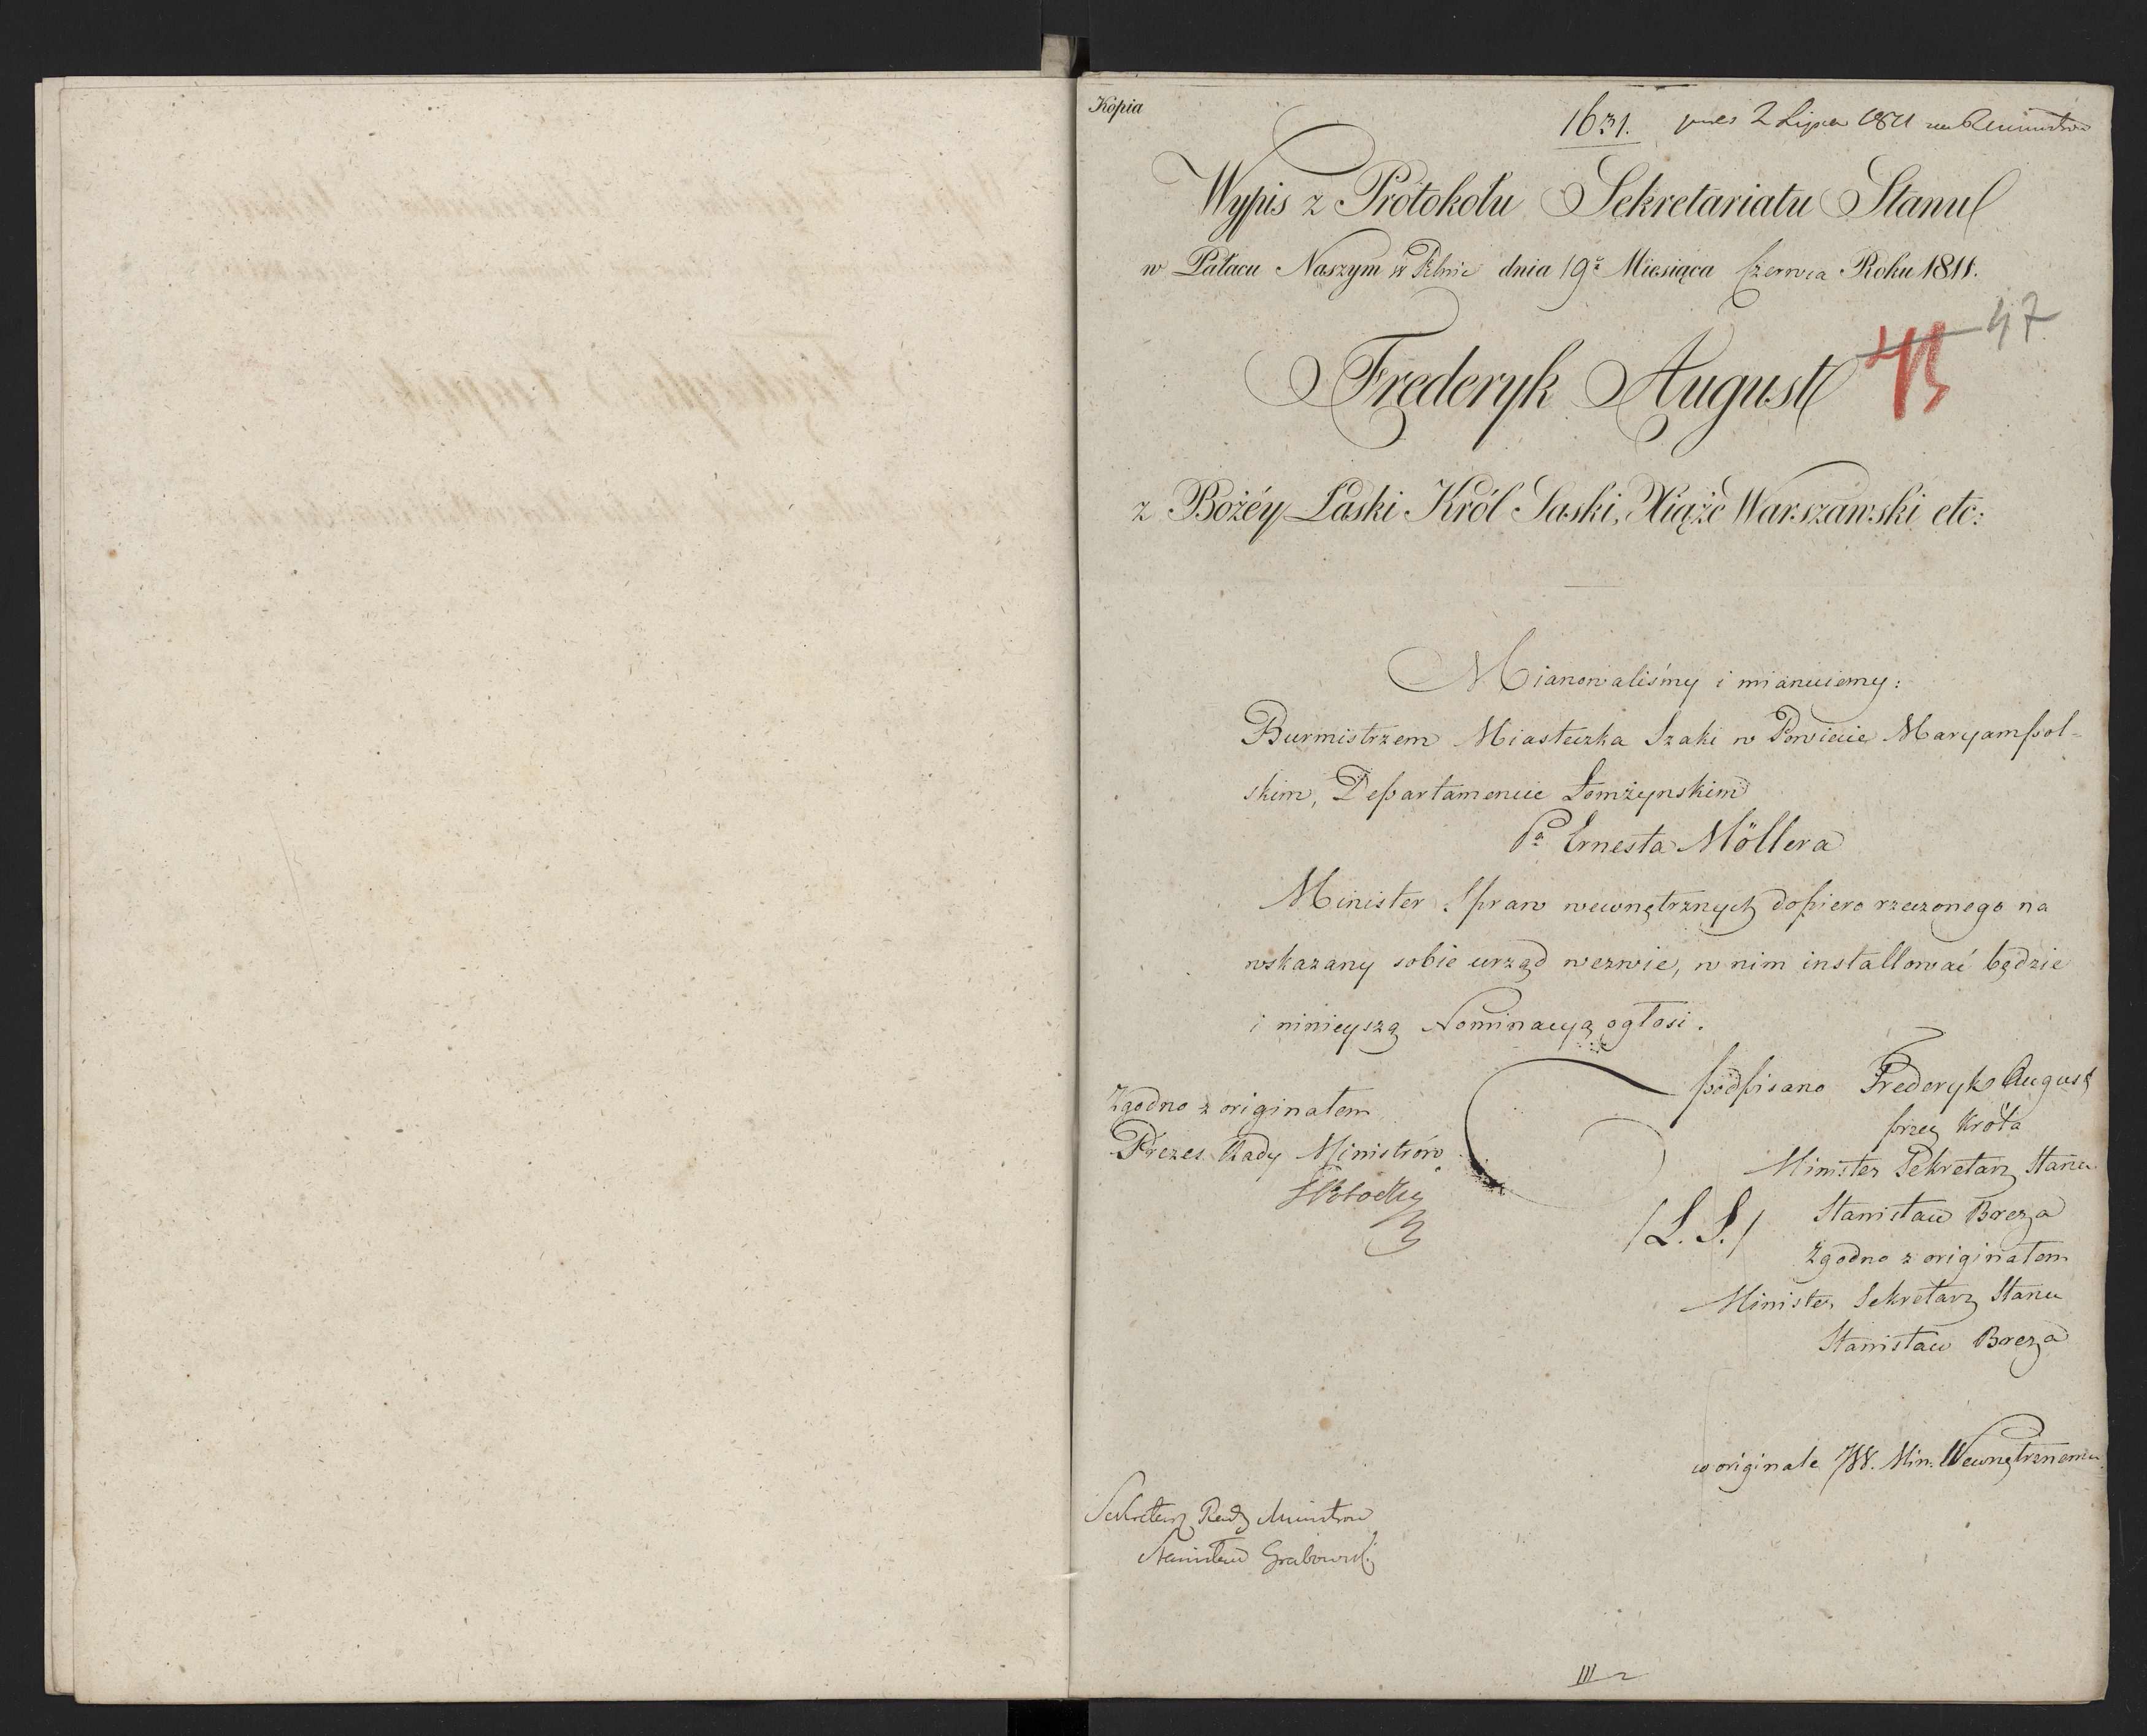 Kopia
1631. pręs 2 Lipca 1811 na R Ministrów
Wypis z Protokołu Sekretariatu Stanu
w Pałacu Naszym w Pilnic dnia 19º Miesiąca Czerwca Roku 1811.
47
Frederyk August
z Bożéy Łaski Król Saski, Xiąże Warszawski etc:
Mianowaliśmy i mianuiemy:
Burmistrzem Miasteczka Szaki w Powiecie Maryampol-
skim, Departamencie Łomżynskim
Pª Ernesta Möllera
Minister Spraw wewnętrznych dopiero rzeczonego na
wskazany sobie urząd wezwie, w nim installować będzie
i ninieyszą Nominacyą ogłosi.
podpisano Frederyk August
przez Króla
Minister Sekretarz Stanu
/L. S./ Stanisław Breza
Zgodno z originałem
Minister Sekretarz Stanu
Stanisław Breza
Zgodno z originałem
Prezes Rady Ministrów
w originale JW. Min. Wewnętrznemu
Sekretarz Rady Ministrow
Stanisław Grabowski
III